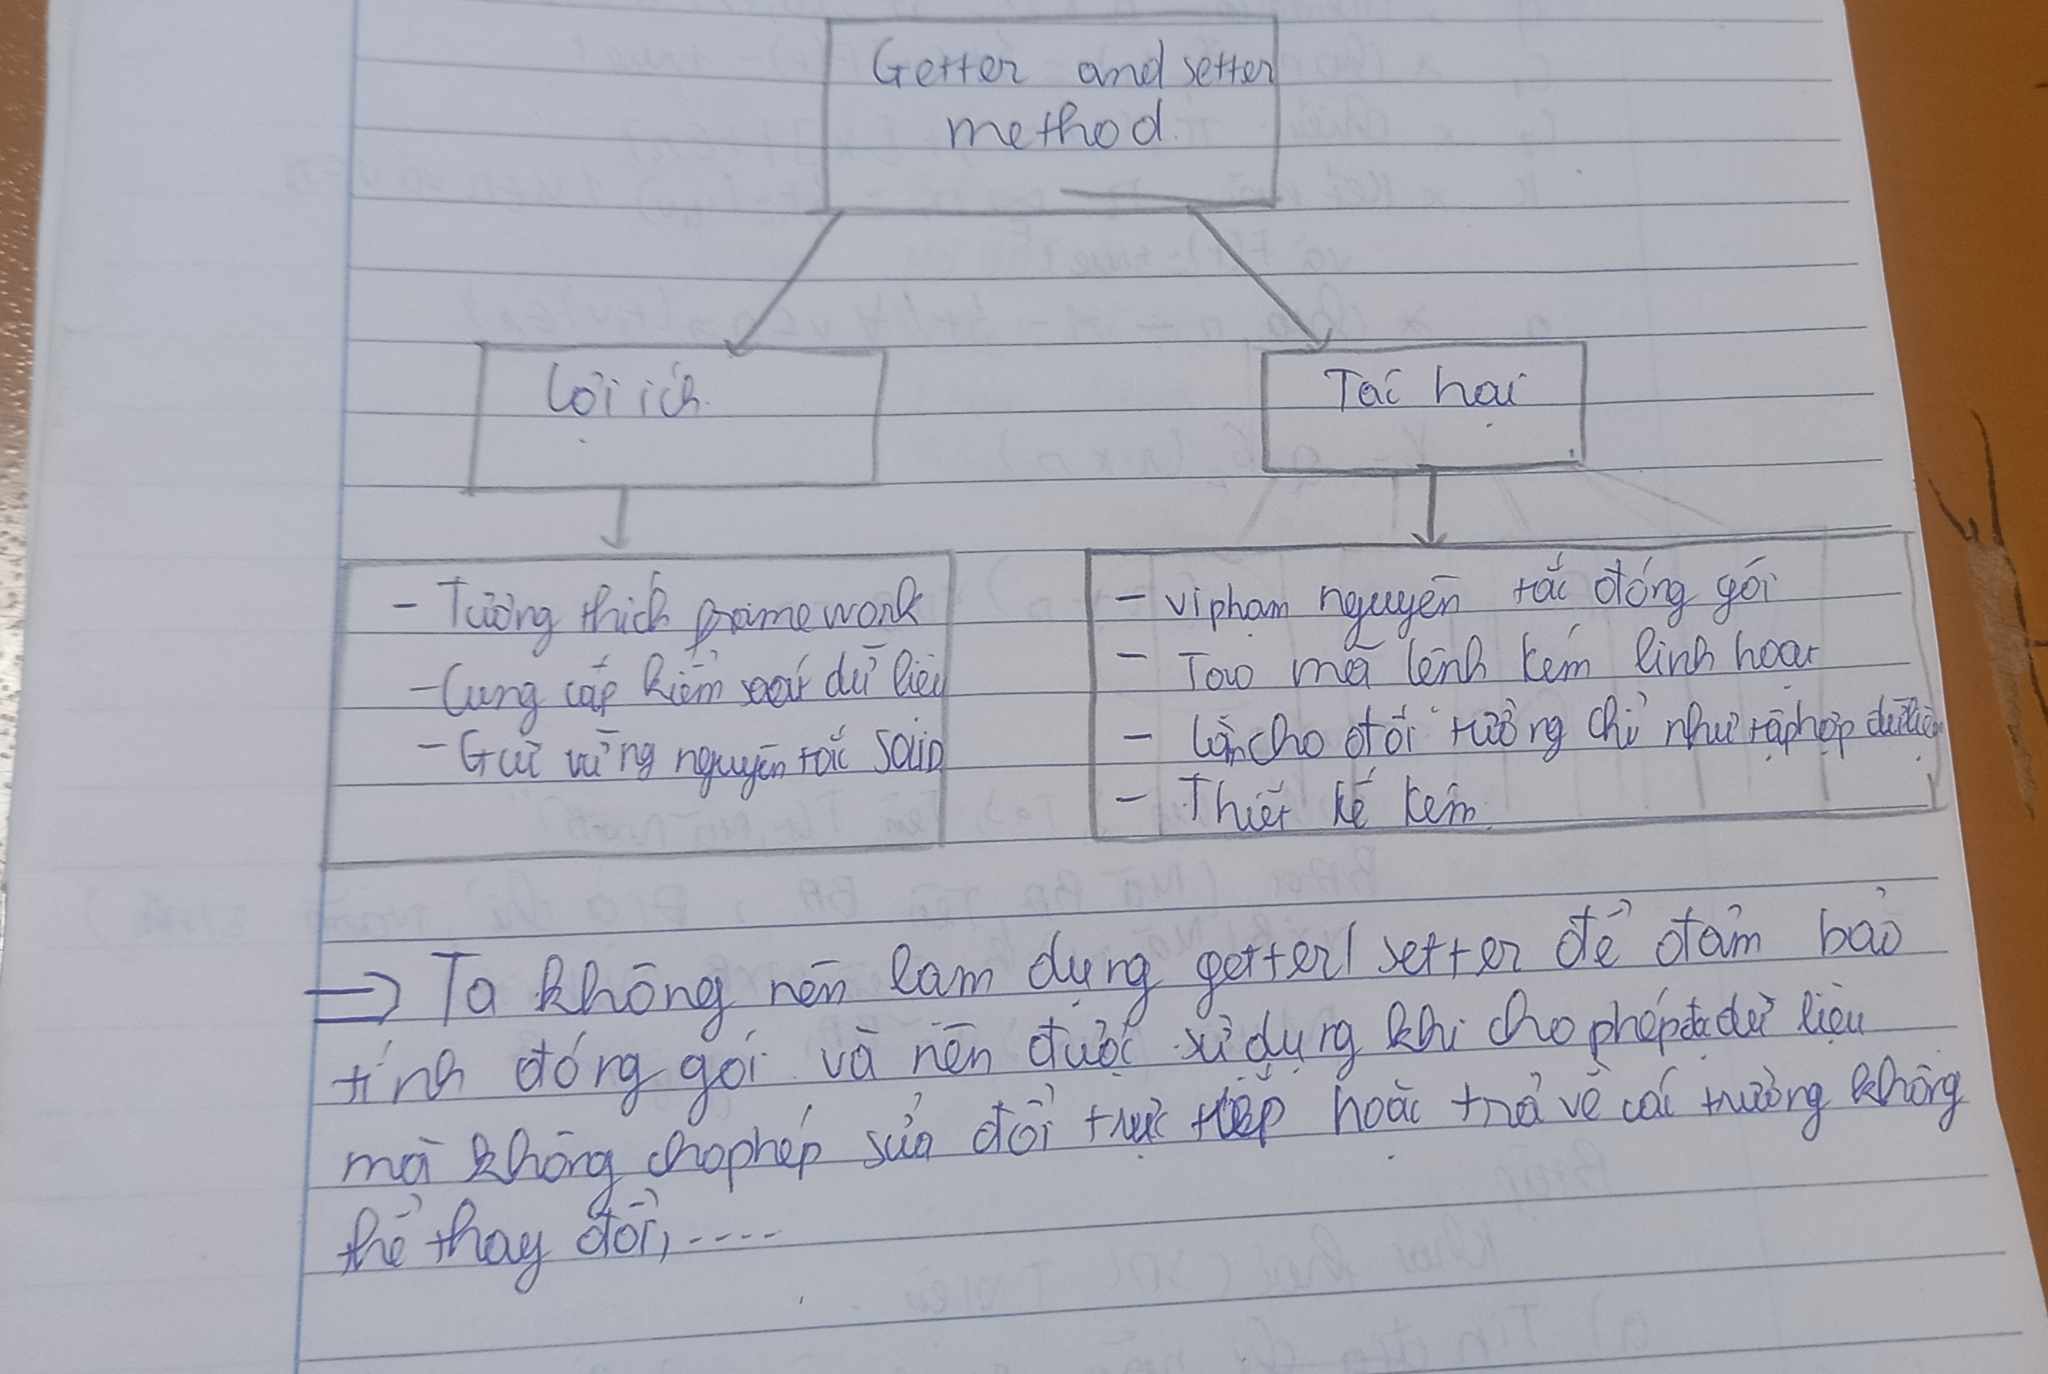 Getter and setter
method.
Lợi ích.
Tác hại
- Tương thích framework
- Cung cấp kiểm soát dữ liệu
- Giữ vững nguyên tắc SOLID
- vi phạm nguyên tắc đóng gói
- Tạo mã lệnh kém linh hoạt
- làm cho đối tượng chỉ như tập hợp dữ liệu
- Thiết kế kém.
=> Ta không nên lạm dụng getter/ setter để đảm bảo
tính đóng gói và nên được sử dụng khi cho phép dữ liệu
mà không cho phép sửa đổi trực tiếp hoặc trả về các trường không
thể thay đổi,....